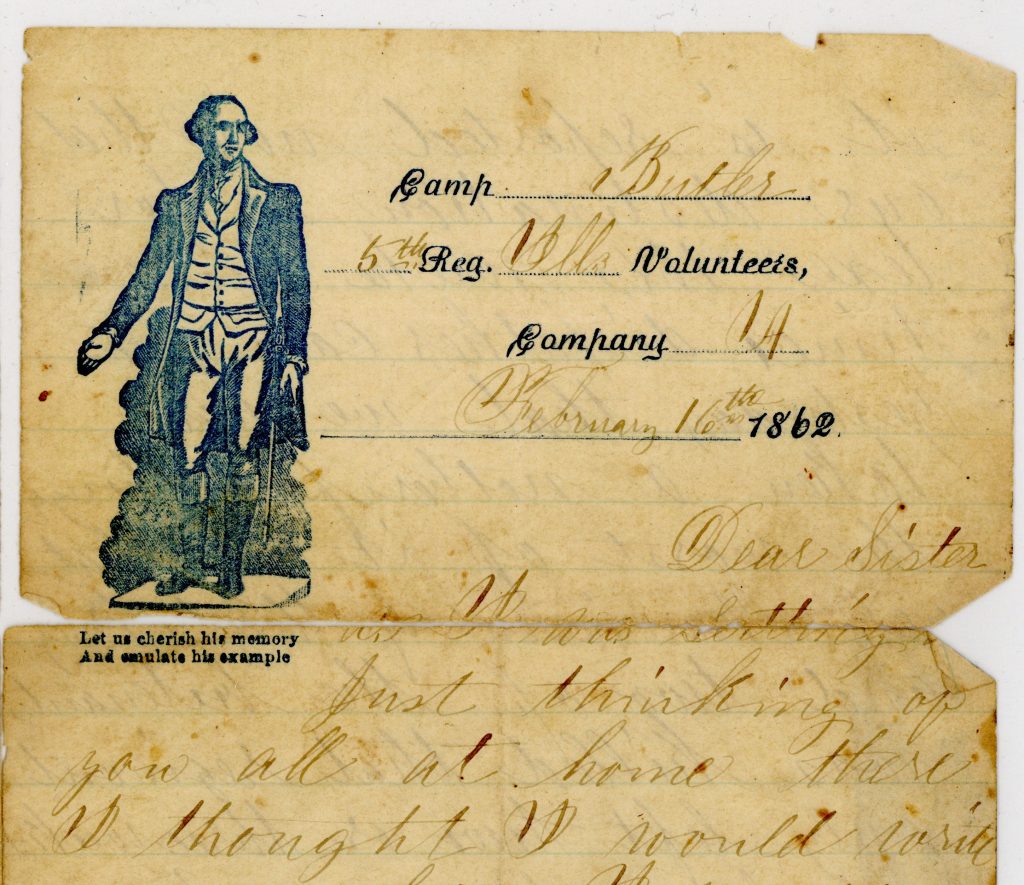 Camp Butler
5th Reg. Ills Volunteers,
Company A
February 16th 1862.
Dear Sister
as I was setting
Let us cherish his memory
And emulate his example
Just thinking of
you all at home there
I thought I would write